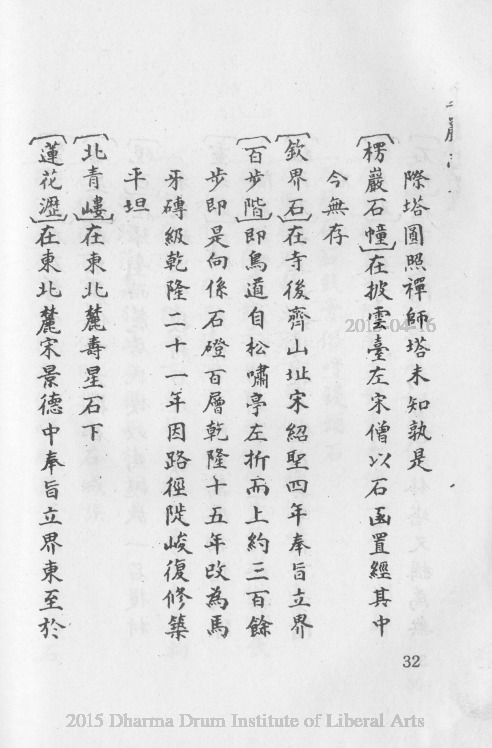 際塔圓照禪師塔未知孰是
〔楞嚴石幢〕在披雲臺左宋僧以石函置經其中
今無存
〔欽界石〕在寺後齊山址宋紹聖四年奉旨立界
〔百步階〕即鳥道自松嘯亭左折而上約三百餘
步即是向係石磴百層乾隆十五年改為馬
牙磚級乾隆二十一年因路徑陡峻復修築
平坦
〔北青嶁〕在東北麓壽星石下
〔蓮花瀝〕在東北麓宋景德中奉旨立界東至於
32
2015-04-16
2015 Dharma Drum Institute of Liberal Arts